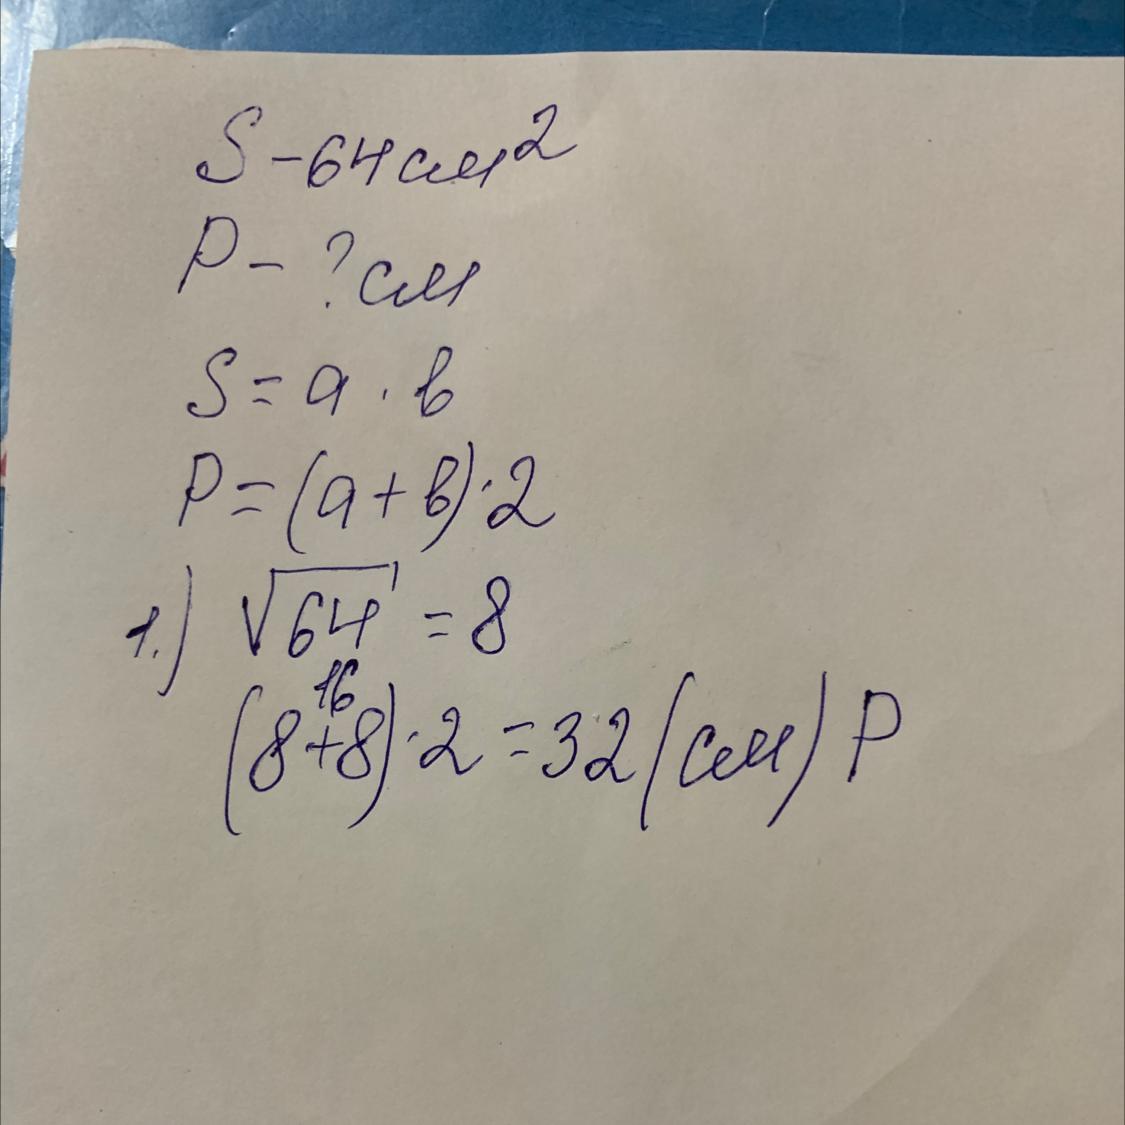 S - 64 см²
P - ? см
S = a · в
P = (a + в) · 2
1.) √64 = 8
16
(8+8) · 2 = 32 (см) P